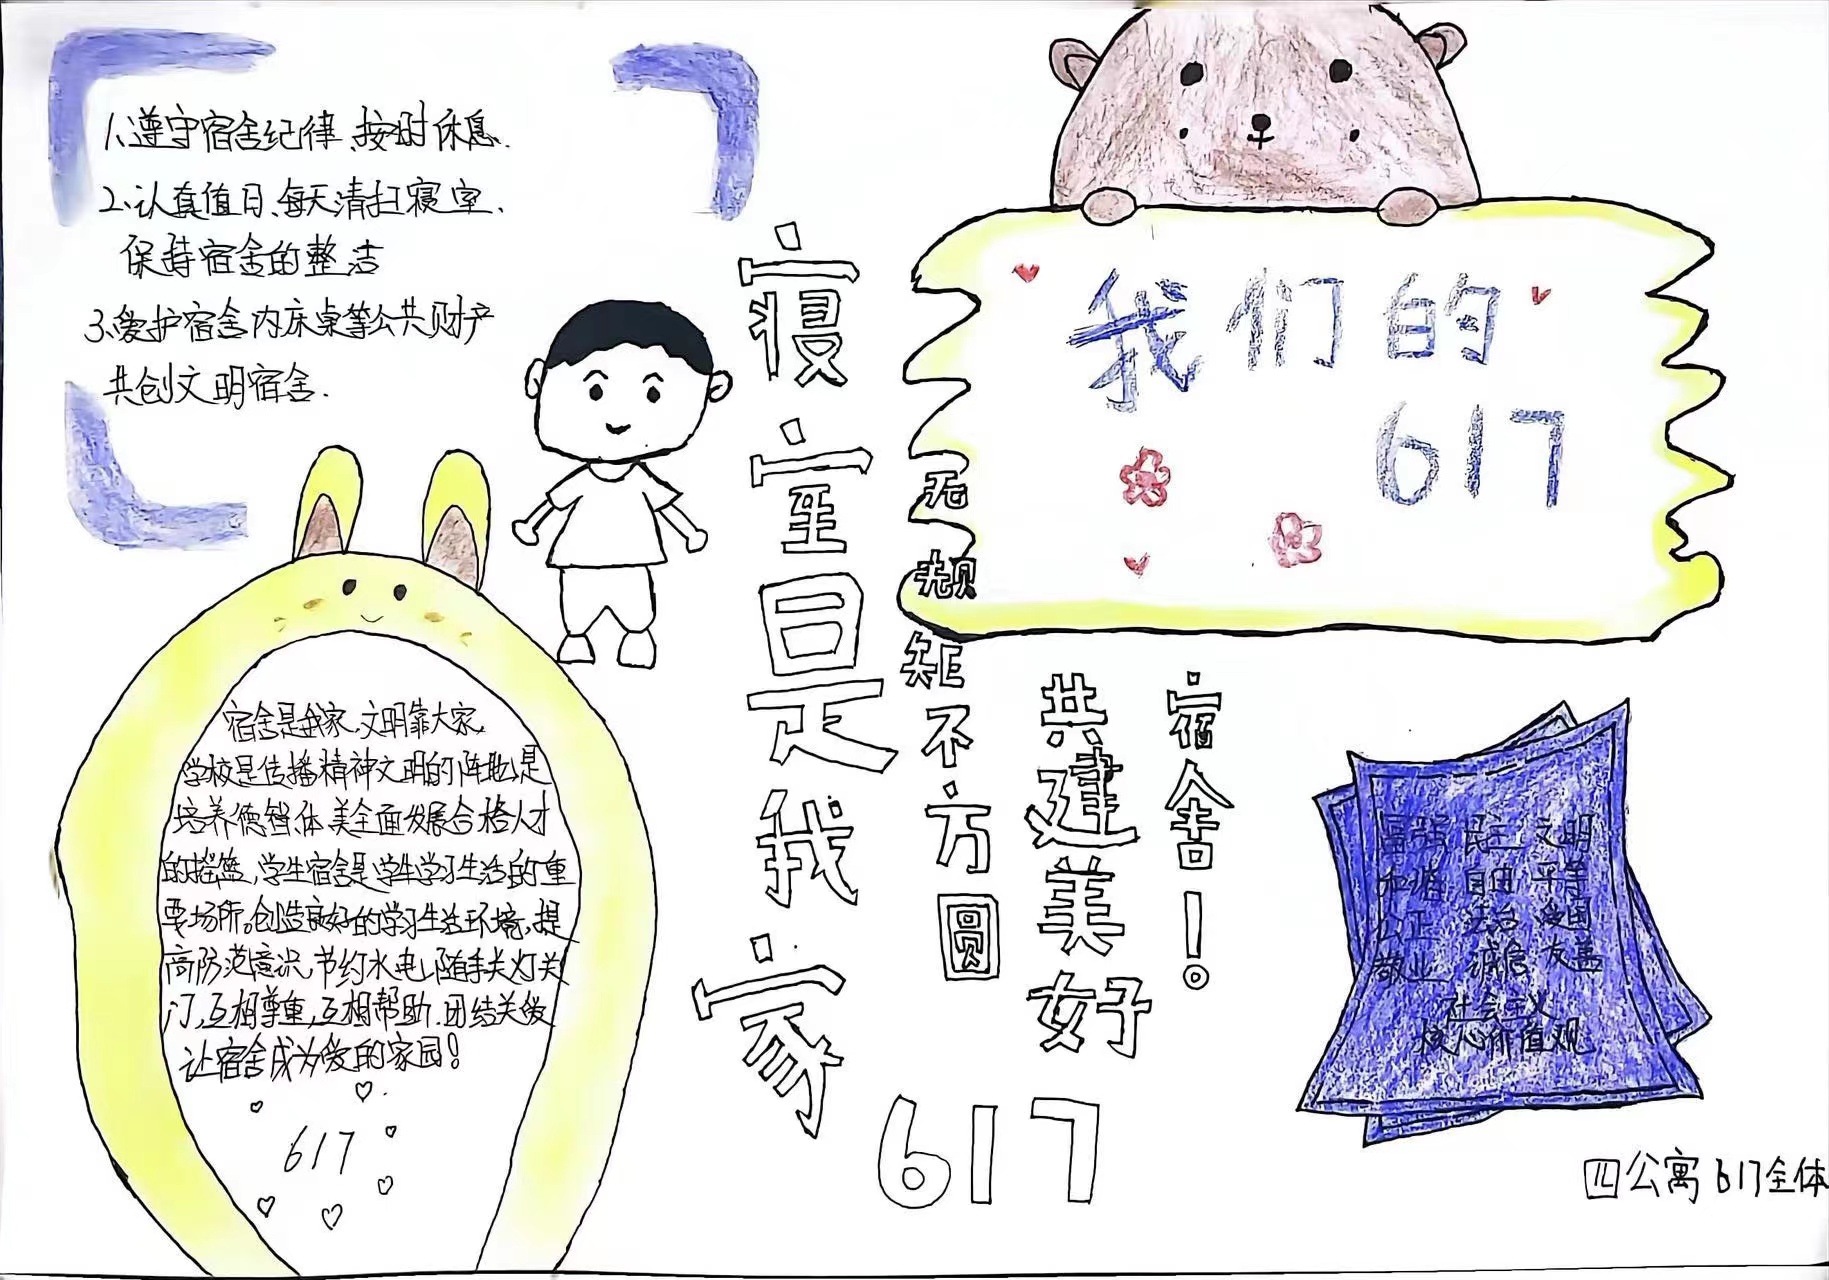 1、遵守宿舍纪律、按时休息.
2、认真值日、每天清扫寝室.
保持宿舍的整洁
3、爱护宿舍内床桌等公共财产
共创文明宿舍.
我们的
617
寝室是我家
无规矩不方圆
共建美好
宿舍！。
617
宿舍是我家,文明靠大家,
学校是传播精神文明的阵地,是
培养德智、体、美全面发展合格人才
的摇篮,学生宿舍是学生学习生活的重
要场所。创造良好的学习生活环境,提
高防范意识,节约水电,随手关灯关
门,互相尊重,互相帮助.团结关爱
让宿舍成为爱的家园!
617
富强 民主 文明
和谐 自由 平等
公正 法治 爱国
敬业 诚信 友善
社会主义
核心价值观
四公寓617全体